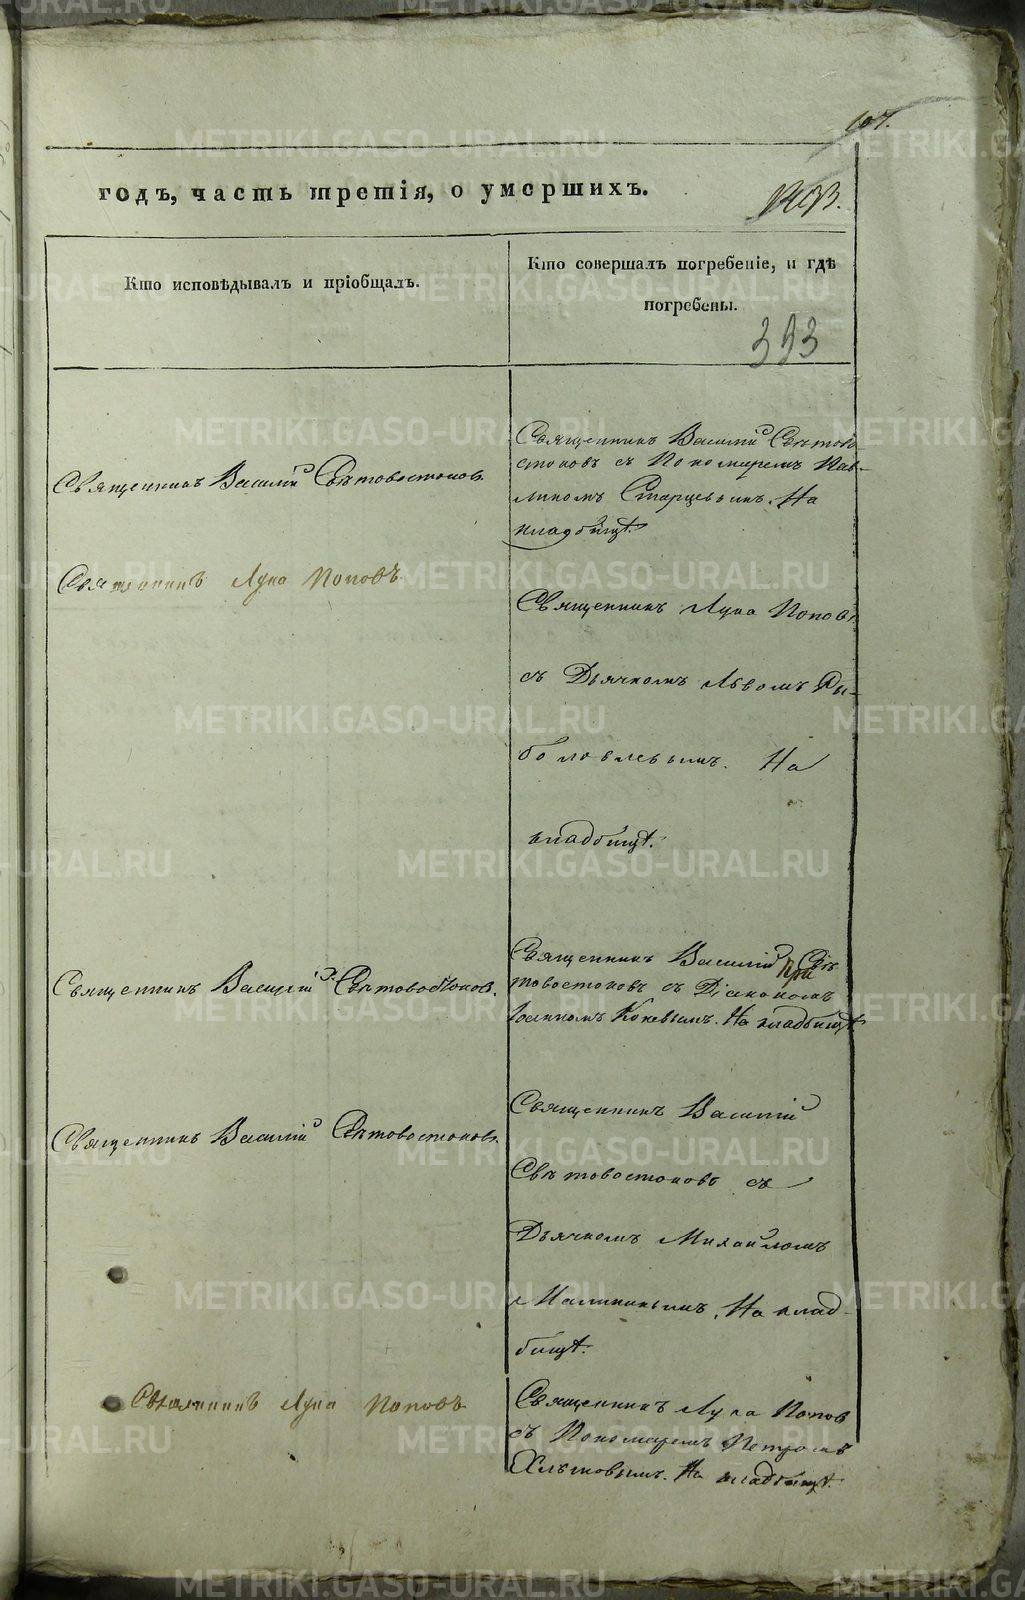 107.
годъ, часть третія, о умершихъ.
Кто исповѣдывалъ и пріобщалъ.
Кто совершалъ погребеніе, и гдѣ
погребены.
393
Священникъ Василій Свѣтовостоковъ
Священникъ Василій Свѣтово
стоковъ съ Пономаремъ Пав-
линомъ Старцевымъ. На
кладбищѣ.
Священникъ Лука Поповъ
Священникъ Лука Поповъ
съ Дьячкомъ Львомъ Ры-
боловлевымъ. На
кладбищѣ.
Священникъ Василій Свѣтовостоковъ.
Священникъ Василій Свѣ
товостоковъ съ Діакономъ
Іоанномъ Коневымъ. На кладбищѣ
Священникъ Василій Свѣтовостоковъ.
Священникъ Василій
Свѣтовостоковъ съ
Дьячкомъ Михаиломъ
Малининымъ, На клад-
бищѣ.
Священникъ Лука Поповъ
Священникъ Лука Попов
съ Пономаремъ Петромъ
Хлѣтовымъ. На кладбищѣ.
METRIKI.GASO-URAL.RU